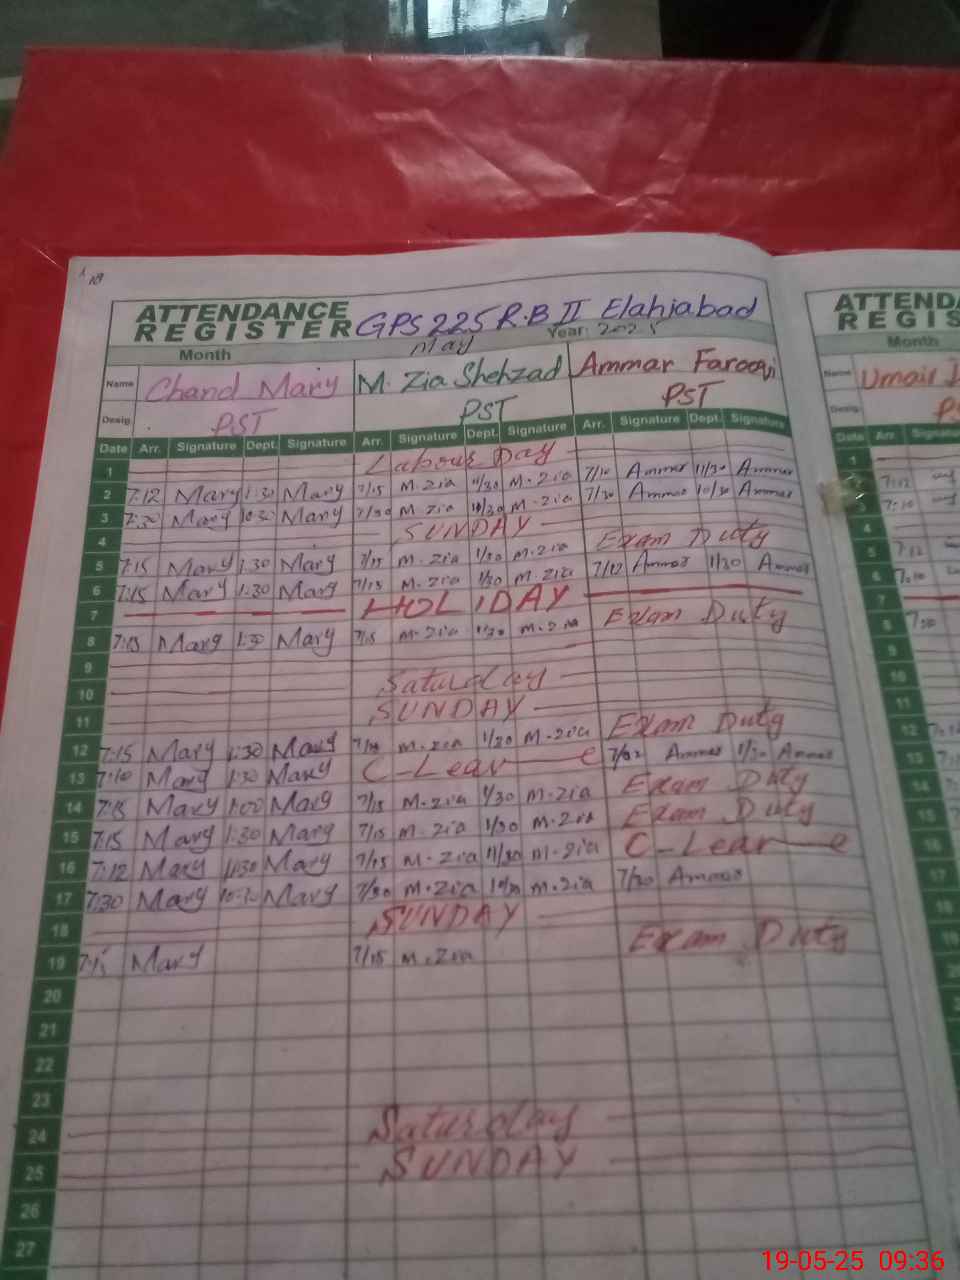 18
ATTENDANCE
REGISTER GPS 225 R.B II Elahiabad
Month May Year: 2025
Name Chand Mary M. Zia Shehzad Ammar Farooqi
Desig. PST PST PST
Date Arr. Signature Dept. Signature Arr. Signature Dept. Signature Arr. Signature Dept. Signature
1 Labour Day
2 7:12 Mary 1:30 Mary 7/15 M.Zia 11/30 M.Zia 7/10 Ammar 11/30 Ammar
3 7:30 Mary 10:30 Mary 7/30 M.Zia 10/30 M.Zia 7/30 Ammar 10/30 Ammar
4 SUNDAY
5 7:15 Mary 1:30 Mary 7/15 M.Zia 1/30 M.Zia Exam Duty
6 7:15 Mary 1:30 Mary 7/15 M.Zia 1/30 M.Zia 7/12 Ammar 1/30 Ammar
7 HOLIDAY
8 7:15 Mary 1:30 Mary 7/15 M.Zia 1/30 M.Zia Exam Duty
9
10 Saturday
11 SUNDAY
12 7:15 Mary 1:30 Mary M.Zia 1/30 M.Zia Exam Duty
13 7:10 Mary 1:30 Mary C-Leave Ammar 1/30 Ammar
14 7:15 Mary 1:00 Mary 7/15 M.Zia 1/30 M.Zia Exam Duty
15 7:15 Mary 1:30 Mary 7/15 M.Zia 1/30 M.Zia Exam Duty
16 7:12 Mary 11:30 Mary 7/15 M.Zia 11/30 M.Zia C-Leave
17 7:30 Mary Mary 7/30 M.Zia M.Zia 7/30 Ammar
18 SUNDAY
19 Mary 7/15 M.Zia Exam Duty
20
21
22
23
24 Saturday
25 SUNDAY
26
27
ATTENDA
REGIS
Month
Name Umair
Desig.
Date Arr. Signatu
1
7:12
3 7:10
4
5 7:12
6 7:10
7
8
9
10
11
12
13
14
15
16
17
18
19
19-05-25 09:36